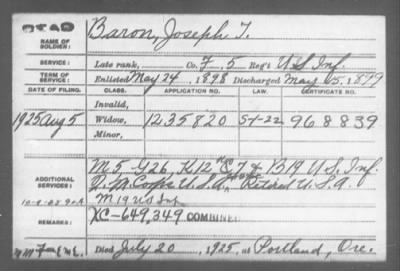 DEAD
NAME OF SOLDIER: Baron, Joseph T.
SERVICE: Late rank, Co. F, 5 Reg't U S Inf.
TERM OF SERVICE: Enlisted May 24, 1898 Discharged May 15, 1899
DATE OF FILING. CLASS. APPLICATION NO. LAW. CERTIFICATE NO.
Invalid,
1925 Aug 5 Widow, 1235820 968839
Minor,
ADDITIONAL SERVICES: M 5, G 26, K 12 & B 19 U.S. Inf.
Retired U.S.A.
M 19 U S Inf
REMARKS: XC-649,349 COMBINED
Died July 20, 1925, at Portland, Ore.